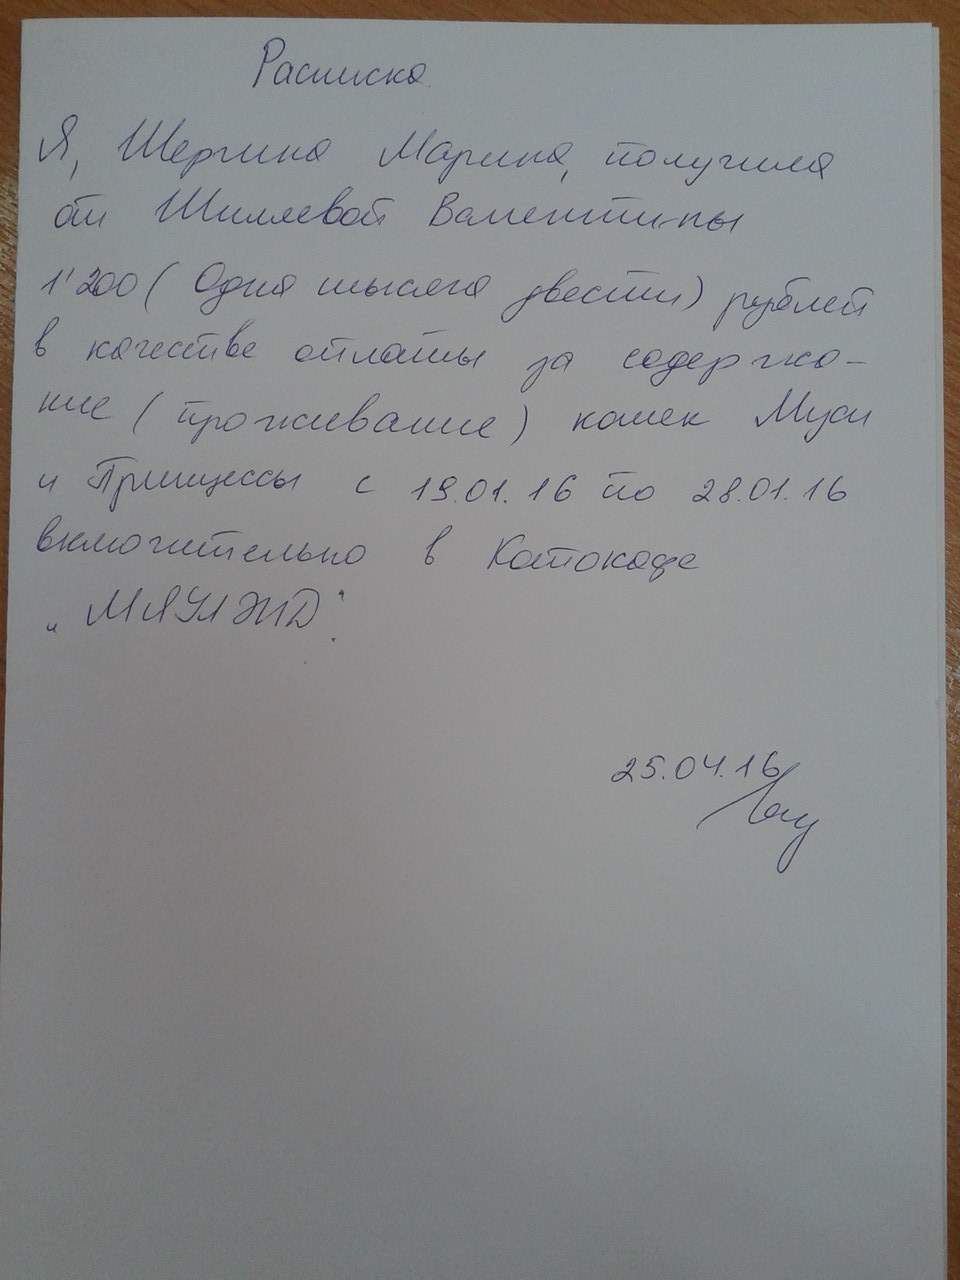 Расписка
Я, Шергина Марина, получила
от Шиляевой Валентины
1'200 (Одна тысяча двести) рублей
в качестве оплаты за содержа-
ние (проживание) кошек Муси
и Принцессы с 19.01.16 по 28.01.16
включительно в Котокафе
"МЯУЛЭНД".
25.04.16